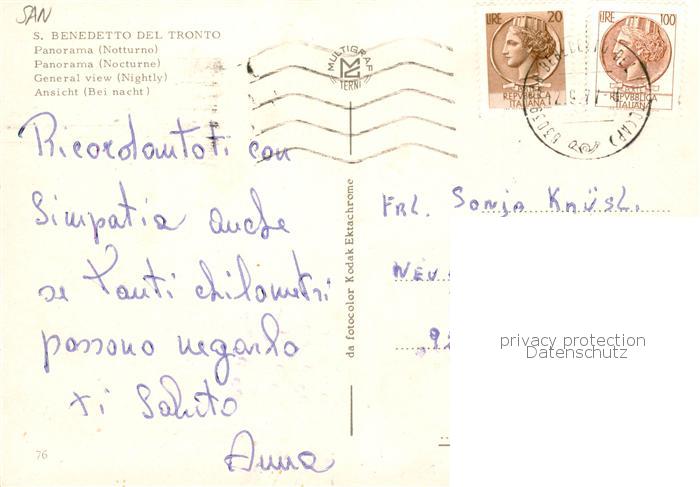 SAN
S. BENEDETTO DEL TRONTO
Panorama (Notturno)
Panorama (Nocturne)
General view (Nightly)
Ansicht (Bei nacht)
MULTIGRAF
TERNI
LIRE 20
REPVBBLICA
ITALIANA
LIRE 100
REPVBBLICA
ITALIANA
Ricordantoti con
simpatia anche
se tanti chilometri
possono negarlo
ti saluto
Anna
da fotocolor Kodak Ektachrome
Frl. Sonja Knüsl.
Neu
privacy protection
Datenschutz
76